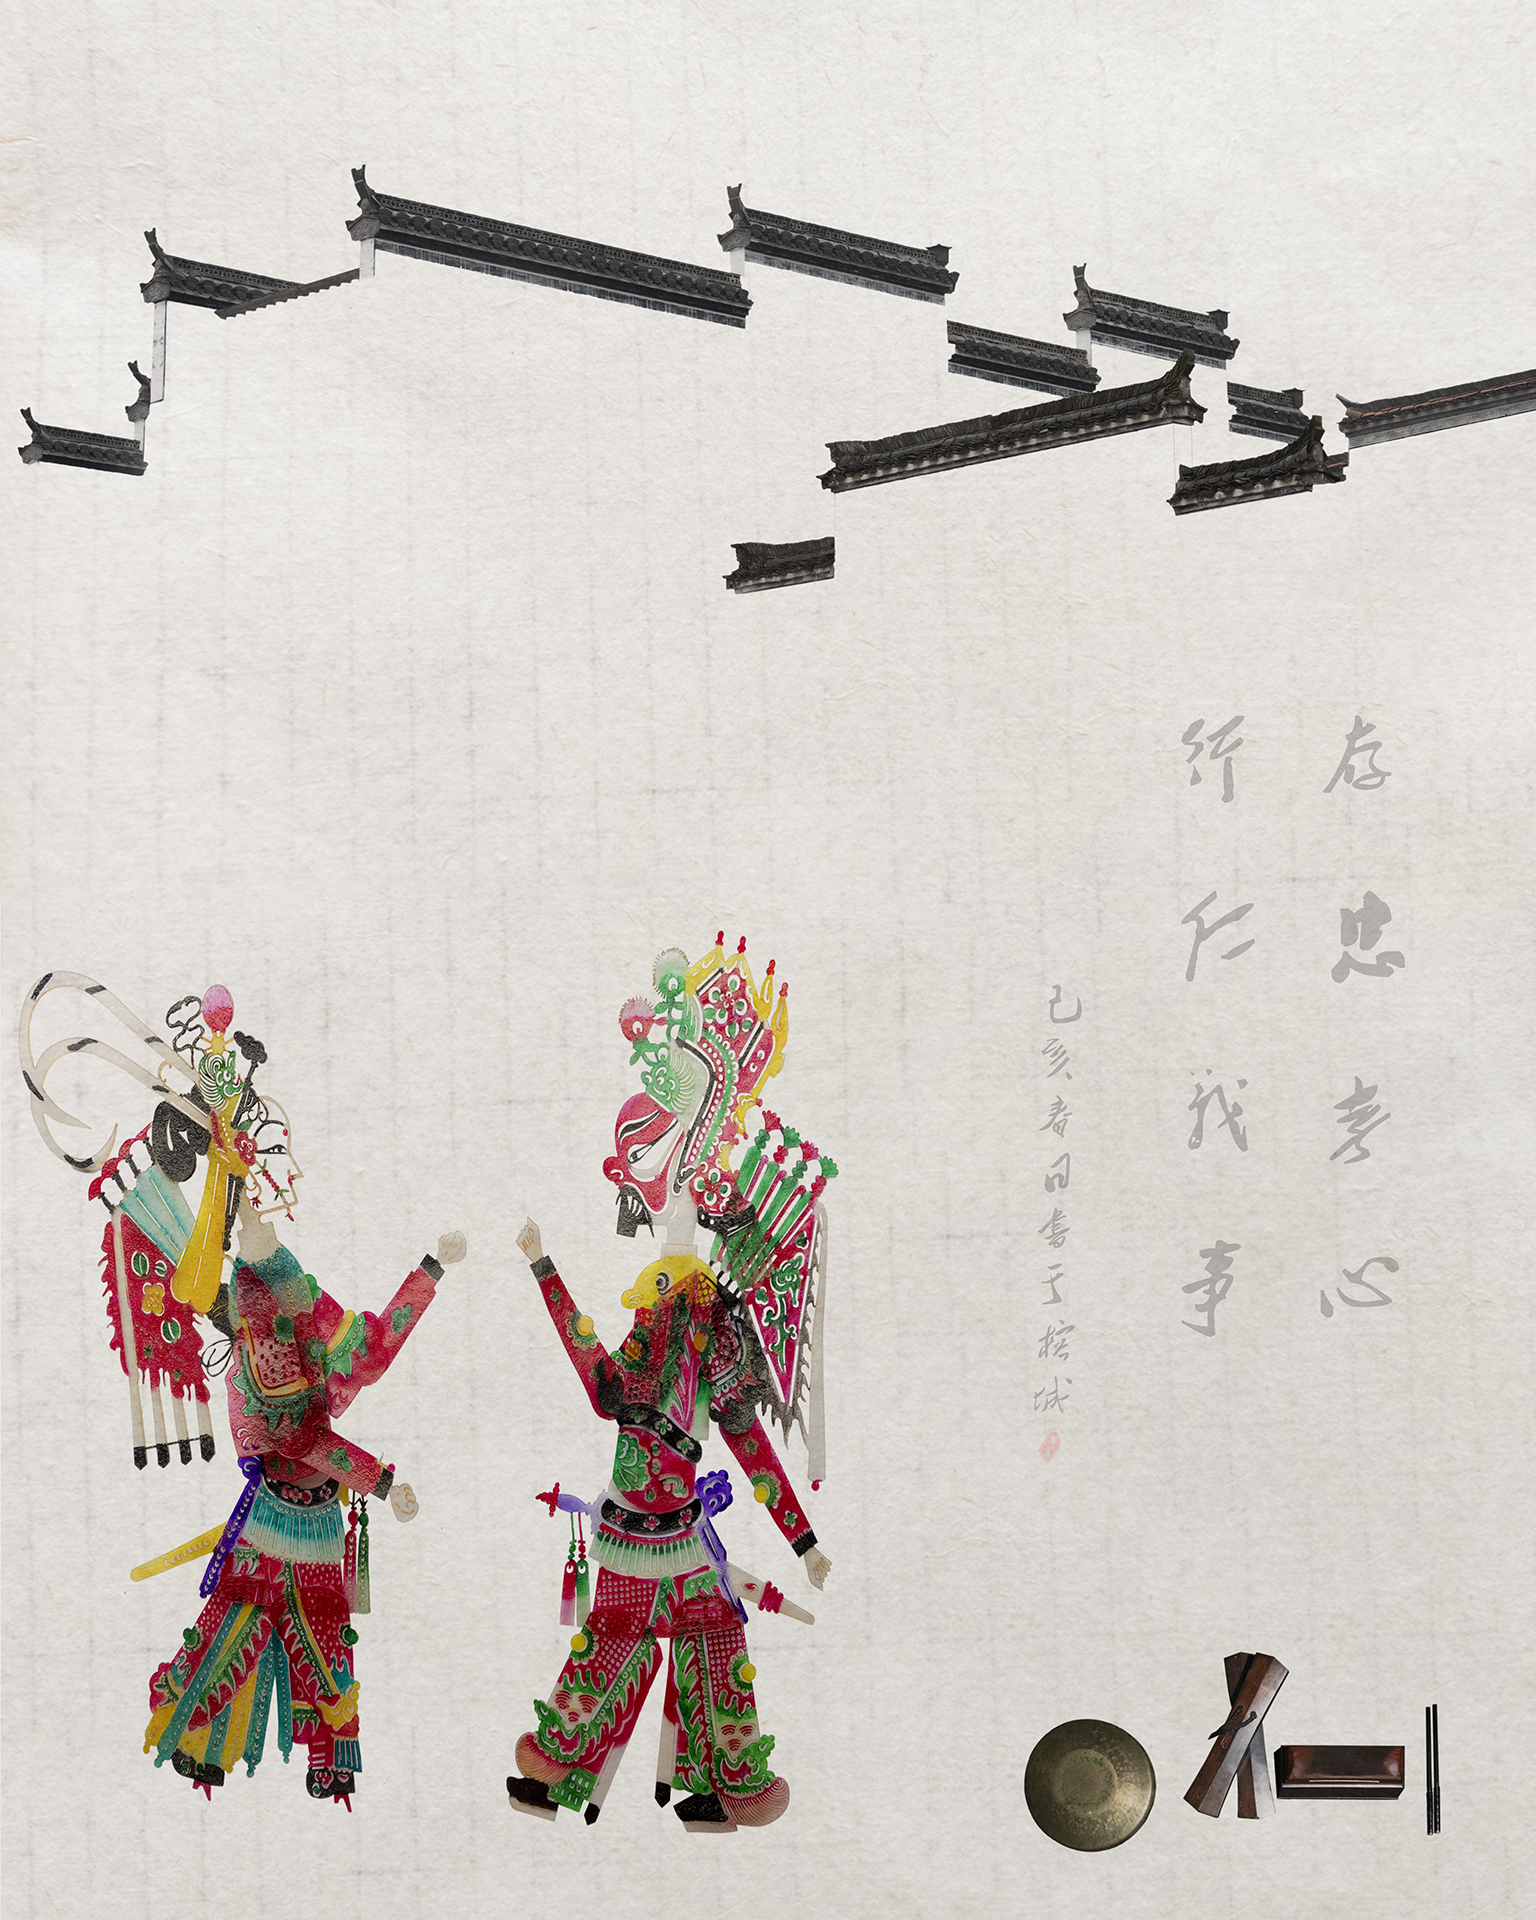 存忠孝心
行仁義事
己亥春日書于榕城